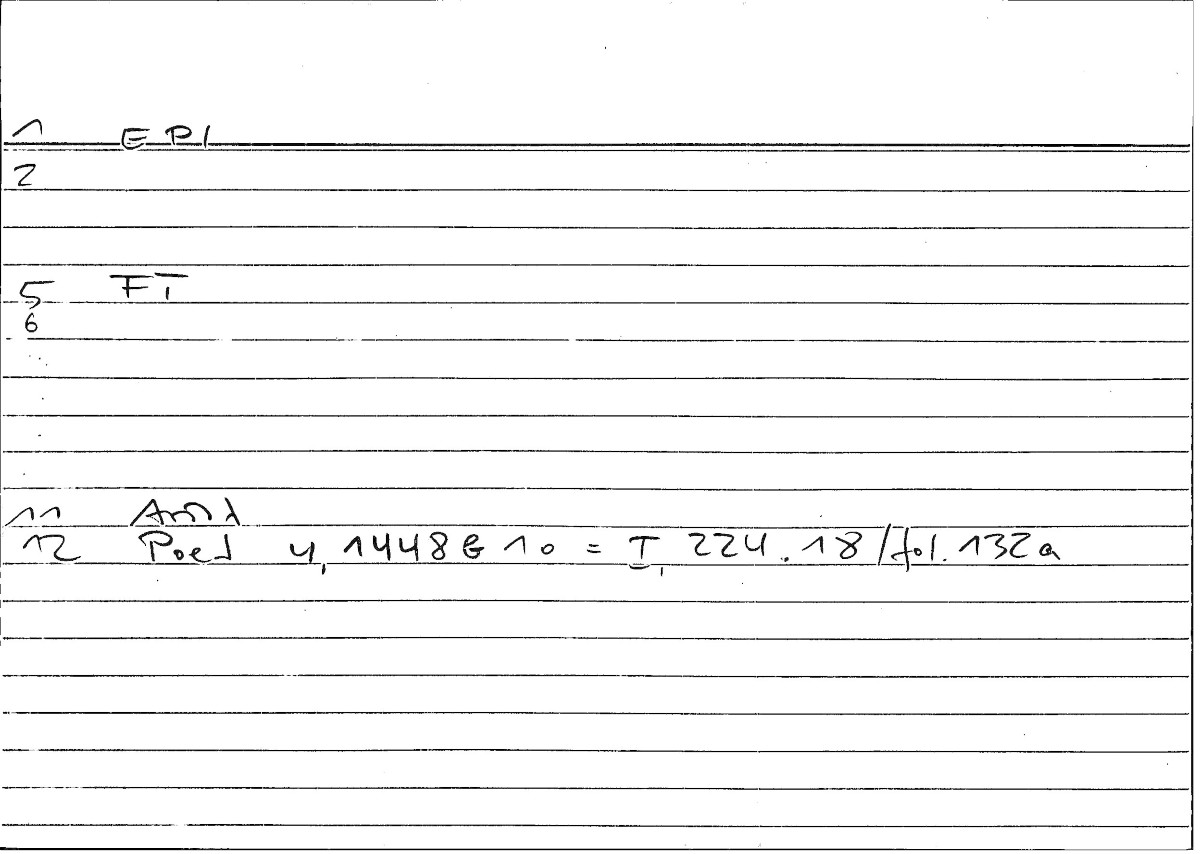 1 EPI
2
5 FT
6
11
12 Poet 4, 1448b10 = I, 224.18/fol. 132a